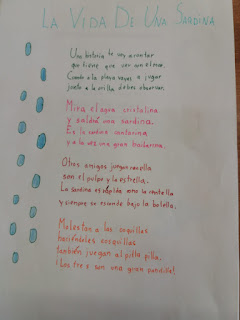 La Vida De Una Sardina
Una historia te voy a contar
que tiene que ver con el mar.
Cuando a la playa vayas a jugar
junto a la orilla debes observar.
Mira el agua cristalina
y saldrá una sardina.
Es la cantarina
y a la vez una gran bailarina.
Otros amigos juegan con ella
son el pulpo y la estrella.
La sardina es rápida como la centella
y siempre se esconde bajo la botella.
Molestan a las coquillas
haciéndoles cosquillas
también juegan al pilla pilla.
¡Los tres son una gran pandilla!